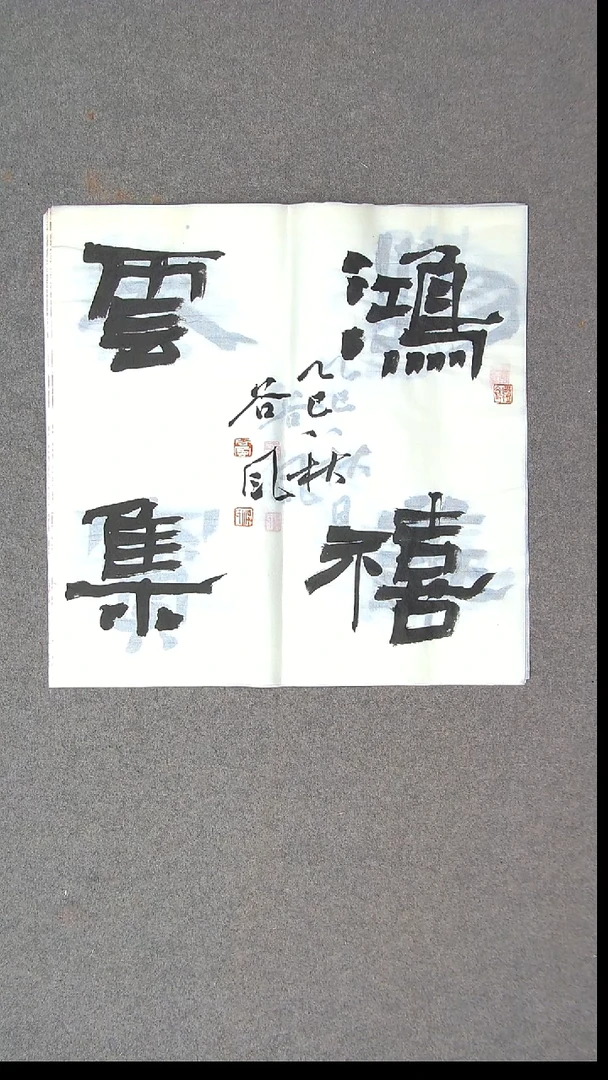 鴻禧
雲集
乙巳秋
谷風